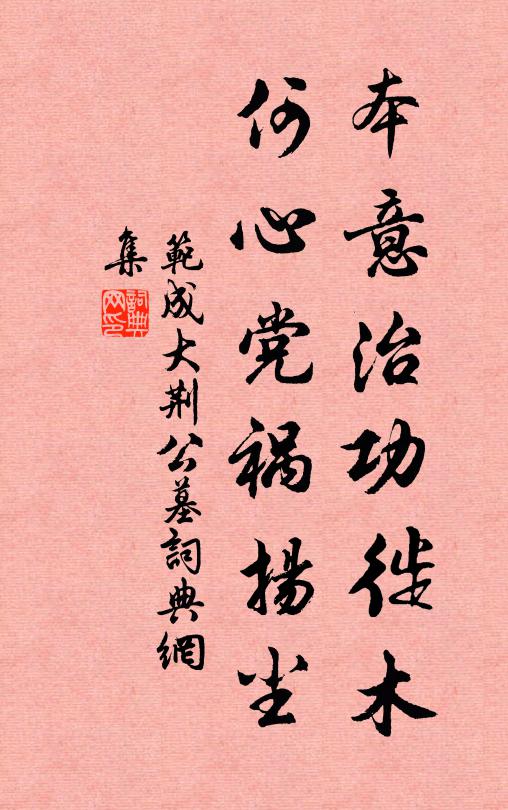 本意治功徙木
何心党祸揚尘
範成大荆公墓詞典網
集
詞典
网印